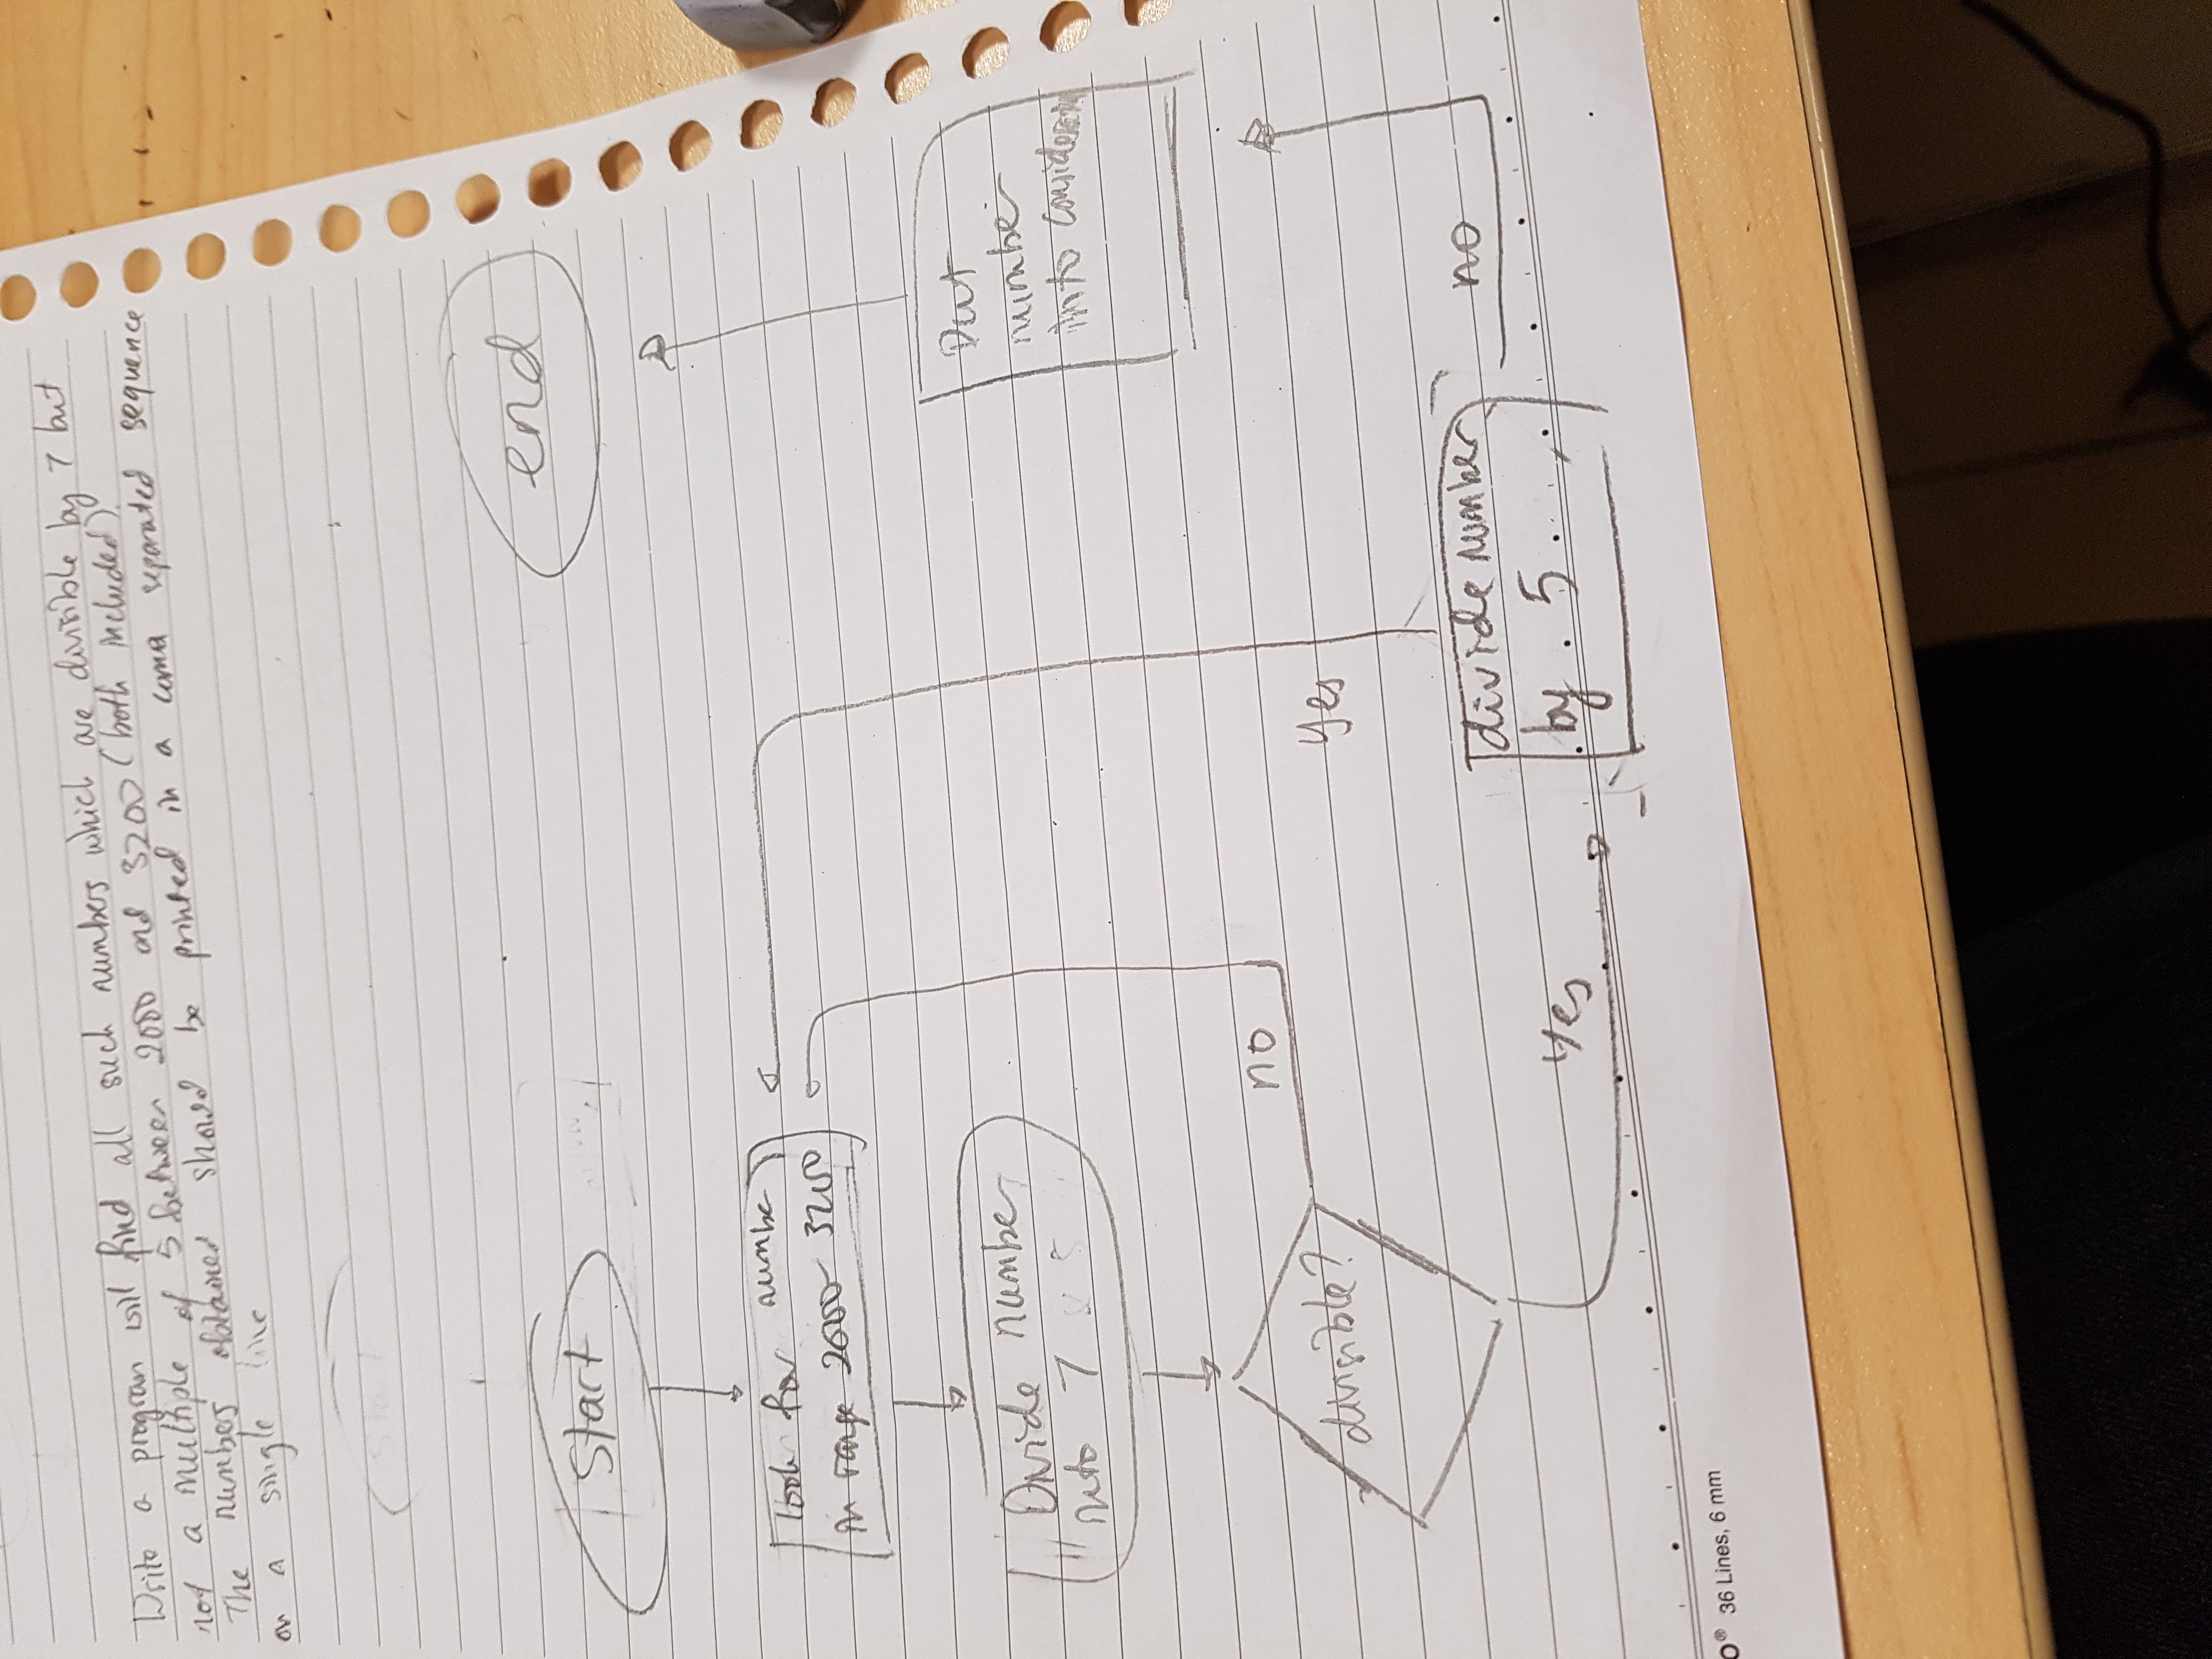 Write a program will find all such numbers which are divisible by 7 but
not a multiple of 5 between 2000 and 3200 (both included).
The numbers obtained should be printed in a coma separated sequence
on a single line
Start
Start
end
look for numbe
in range 2000- 3200
Divide number
into 7 & 5
divisible?
no
Yes
divide number
by 5
Yes
no
Put
number
into consideration
O® 36 Lines, 6 mm